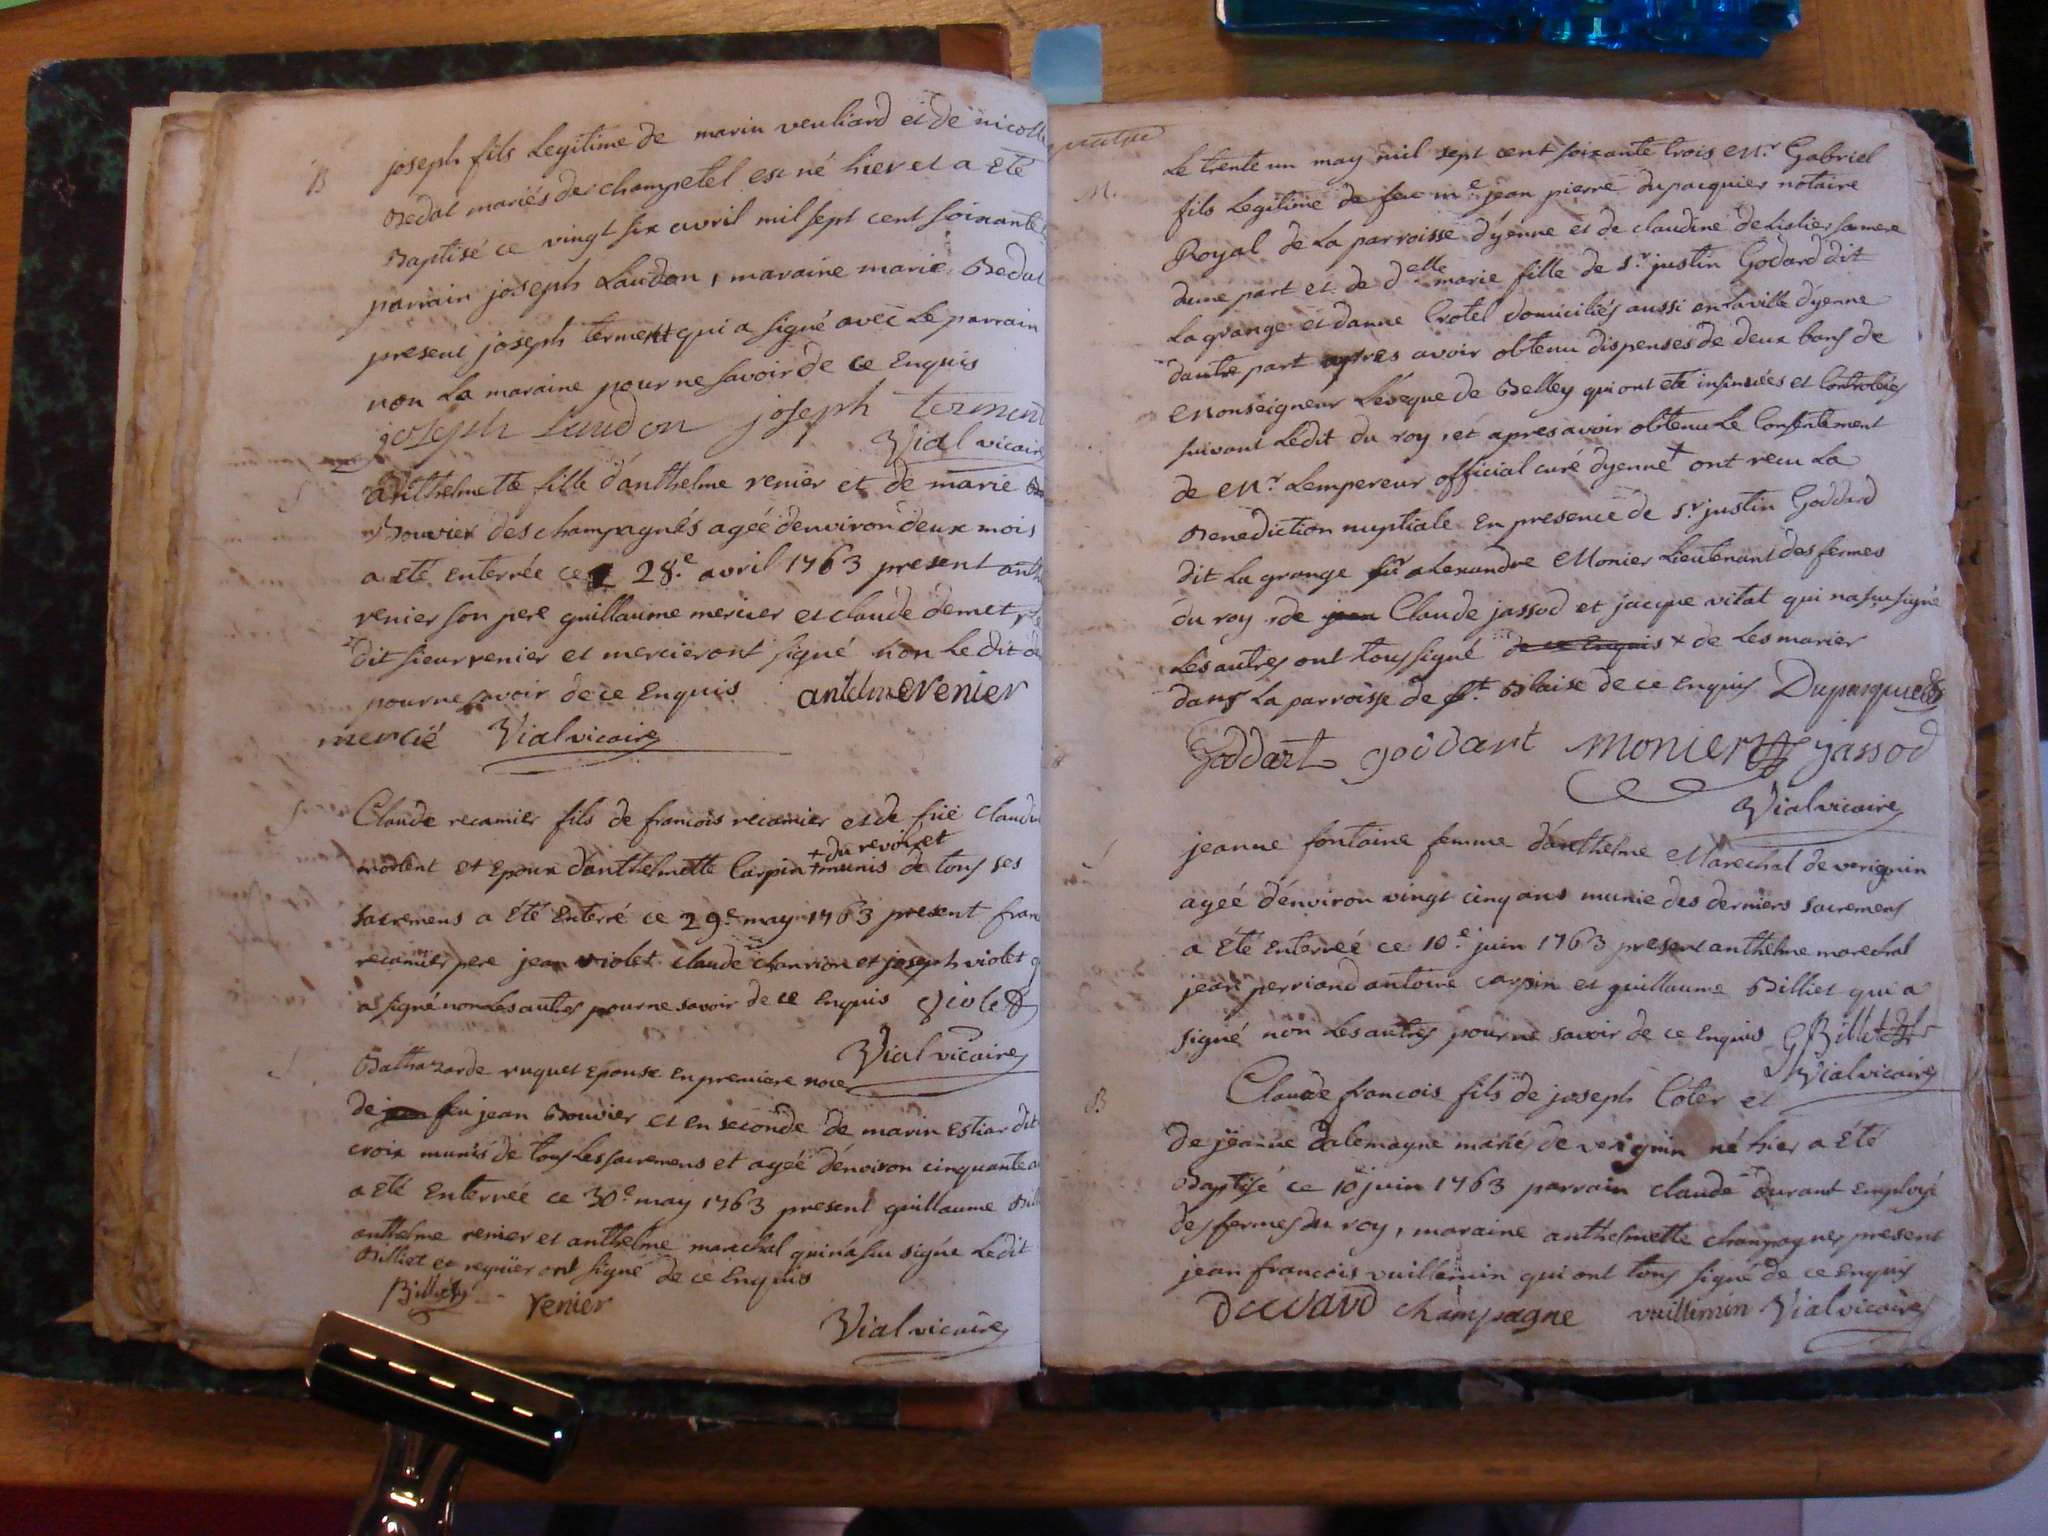 B
joseph fils Legitime de marin veuliard et de nicoll
Bedat mariés de champetel est né hier et a Eté
Baptisé ce vingt six avril mil sept cent soixante
parrain joseph Laudon, maraine marie Bedat
present joseph terment qui a signé avec Le parrain
non La maraine pour ne savoir de ce Enquis
joseph Laudon joseph terment
Vial vicaire
anthelmette fille d'anthelme renier et de marie
Bouvier des champagnés agée d'environ deux mois
a Eté Enterrée ce 28.e avril 1763 present anth
renier son pere guillaume mercier et claude demet
dit sieur renier et mercier ont signé non Le dit
pour ne savoir de ce Enquis antelme renier
mercié Vial vicaire
Claude recamier fils de francois recamier et de fue claudi
+ du revoir et
molent et Epoux d'anthelmette Carpin + munis de tous ses
sacremens a été Enterré ce 29e may 1763 present fran
recamier pere jean violet claude chanrion et joseph violet q
a signé non Les autres pour ne savoir de ce Enquis violet
Vial vicaire
Balthazarde ruquet Epouse En premiere noce
de jean feu jean Bouvier et en seconde de marin Estiar dit
croix munis de tous Les sacremens et agéé d'environ cinquante a
a Eté Enterrée ce 30e may 1763 present guillaume Bill
anthelme renier et anthelme marechal qui n'a su signé Le dit
Billiet et reynier ont signé de ce Enquis
Billiet renier
Vial vicaire
quatre
M.
Le trente un may mil sept cent soixante trois Mr. Gabriel
fils Legitime de feu me. jean pierre dupasquier notaire
Royal de La parroisse d'yenne et de claudine delislier sa mere
dune part et de delle marie fille de Sr. justin Godard dit
La grange et danne Crotel domiciliés aussi en La ville d'yenne
dautre part apres avoir obtenu dispenses de deux bans de
Monseigneur L'éveque de Belley qui ont eté insinuées et Controlées
suivant L'edit du roy, et apres avoir obtenu Le Consentement
de Mr. Lempereur official curé d'yenne + ont recu La
Benediction nuptiale En presence de Sr. justin Goddard
dit La grange sr. alexandre Monier Lieutenant des fermes
du roy, de jean Claude jassod et jacque vitat qui n'a su signé
Les autres ont tous signé de ce Enquis + de Les marier
dans La parroisse de St. Blaise de ce Enquis Dupasquier
Goddart goddart monier jassod
Vial vicaire
jeanne fontaine femme d'anthelme Marechal de verignin
agéé d'environ vingt cinq ans munie des derniers sacremens
a Eté Enterreé ce 10.e juin 1763 present anthelme marechal
jean perriand antoine carpin et guillaume Billiet qui a
signé non Les autres pour ne savoir de ce Enquis G Billiet
Vial vicaire
B
Claude francois fils de joseph Coter et
de jeanne dalemagne mariés de verignin né hier a Eté
Baptisé ce 10e juin 1763 parrain claude durant Employé
des fermes du roy, maraine anthelmette champagne, present
jean francois vuillemin qui ont tous signé de ce Enquis
Durand champagne vuillimin Vial vicaire